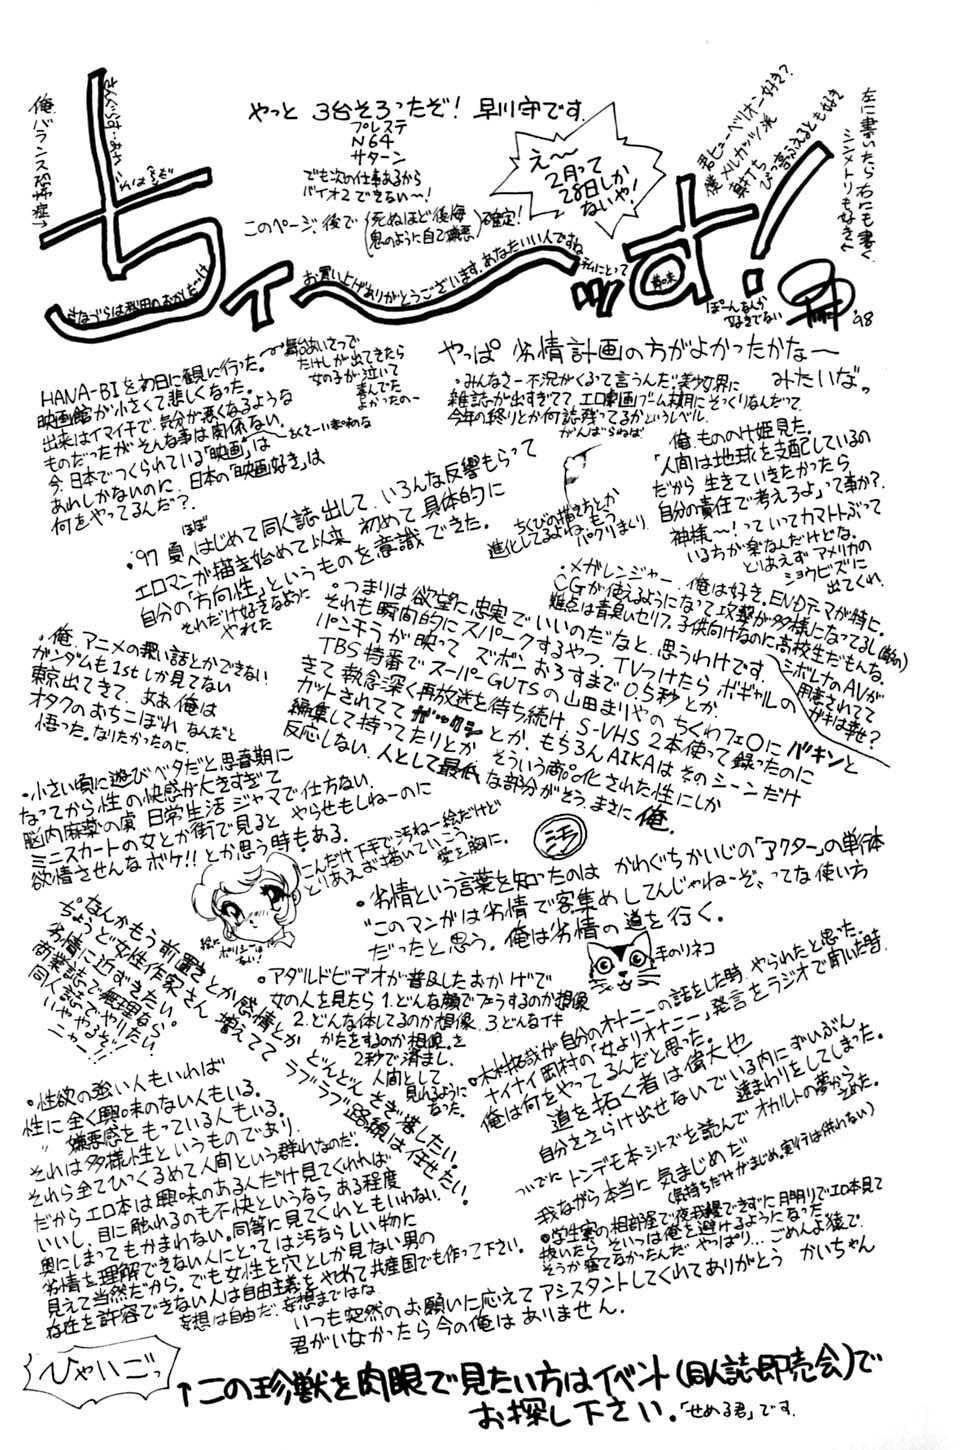 やっと 3台そろったぞ! 早川守です.
プレステ
N64
サターン
でも次の仕事あるから
バイオ2できない〜!
このページ、後で(死ぬほど後悔 鬼のように自己嫌悪)確定!
え〜
2月って
28日しか
ないや!
君ヒューペリオン好き?
僕メルカッツ派
左に書いたら右にも書く
シンメトリも好き
俺バランス恐怖症
ちィ〜ッす!
お買い上げありがとうございます.あなたいい人ですね
私にとって
'98
HANA-BIを初日に観に行った。
映画館が小さくて悲しくなった。
出来はイマイチで、気分が悪くなるような
ものだったがそんな事は関係ない。
今、日本でつくられている「映画」は
あれしかないのに、日本の「映画好き」は
何をやってるんだ?
舞台あいさつで
たけしが出てきたら
女の子が泣いて
喜んでた
よかったの〜
やっぱ 劣情計画の方がよかったかな〜
みたいなっ
・みんなさー不況がくるって言うんだ.美少女界に
雑誌が出すぎてて、エロ劇画ブーム末期にそっくりなんだって
今年の終りとか何誌残ってるかというレベル.
がんばらねば
俺、もののけ姫見た。
「人間は地球を支配しているの
だから 生きていきたかったら
自分の責任で考えろよ」って事か?
神様〜!っていってカマトトぶって
いる方が楽なんだけどな。
とりあえず アメリカの
ショウビズに
出てくれ
ちくびの描き方とか
進化してるよね.もう
パクリまくり.
'97 夏へはじめて同人誌出して、いろんな反響もらって
ほぼ
エロマンガ描き始めて以来 初めて具体的に
自分の「方向性」というものを意識できた。
それだけ好きなように
やれた
・メガレンジャー、俺は好き。ENDテーマが特に。
CGが使えるようになって攻撃が多様になってるし
難点は青臭いセリフ。子供向けなのに高校生だもんな。
シボレナのAVが
用意されてて
・つまりは欲望に忠実でいいのだなと、思うわけです。
それも瞬間的にスパークするやつ、TVつけたら ボギャルの
パンチラが映って ズボンおろすまで0.5秒とか.
TBS特番でスーパーGUTSの山田まりやの ちくわフェ〇に バキンと
きて 執念深く再放送を待ち続け、S-VHS 2本使って録ったのに
カットされてて ガックシ とか、もちろんAIKAはそのシーンだけ
編集して持ってたりとか そういう商品化された性にしか
反応しない、人として最低な部分がそう、まさに俺.
・俺、アニメの濃い話とかできない
ガンダムも1stしか見てない
東京出てきて、ああ俺は
オタクのおちこぼれ なんだと
悟った。なりたかったのに.
・小さい頃に遊びベタだと思春期に
なってから性の快感が大きすぎて
脳内麻薬の虜、日常生活ジャマで仕方ない.
ミニスカートの女とか街で見ると やらせもしねーのに
欲情させんなボケ!!とか思う時もある.
こんだけ下手で汚ねー絵だけど
とりあえず描いていこう
愛を胸に.
・劣情という言葉を知ったのは かわぐちかいじの「アクター」の単行本
"このマンガは劣情で客集めしてんじゃねーぞ、ってな使い方
だったと思う。俺は劣情の道を行く。
手のりネコ
・なんかもう前置きとか感情とか
ちょうど女性作家さん 増えてて
劣情に近ずきたい。
商業誌で無理なら
同人誌でやりたい
いややるぞ!
ニャー!!
どんどん とぎ澄したい.
ラブラブ路線は任せたい.
・アダルトビデオが普及したおかげで
女の人を見たら 1.どんな顔でフーラするのか想像
2.どんな体してるのか想像、3どんなイキ
かたをするのか想像、を
2秒で済まし、
人間として
見れるように
なった。
・木村拓哉が自分のオナニーの話をした時、やられたと思った.
ナイナイ岡村の「女よりオナニー」発言をラジオで聞いた時.
俺は何をやってるんだと思った。
道を拓く者は偉大也
自分をさらけ出せないでいる内にずいぶん
遠まわりをしてしまった。
ついでに トンデモ本シリーズを読んで オカルトの夢から
さめた.
我ながら本当に 気まじめだ
(気持ちだけがまじめ。実行は伴わない)
・性欲の強い人もいれば
性に全く興味のない人もいる.
〃 嫌悪感をもっている人もいる.
それは多様性というものであり、
それら全てひっくるめて人間という群れなのだ.
だからエロ本は興味のある人だけ見てくれれば
いいし、目に触れるのも不快というなら ある程度
奥にしまってもかまわない。同等に見てくれともいわれない.
劣情を理解できない人にとっては汚ならしい物に
見えて当然だから。でも女性を穴としか見ない男の
存在を許容できない人は自由主義をやめて共産国でも作って下さい。
妄想は自由だ.妄想まではな
・学生寮の相部屋で夜我慢できずに月明りでエロ本見て
抜いたら、そいつは俺を避けるようになった
そうか寝てなかったんだ やっぱり…ごめんよ後で.
いつも突然のお願いに応えて アシスタントしてくれてありがとう かいちゃん
君がいなかったら今の俺はありません.
ひゃいごっ
↑この珍獣を肉眼で見たい方はイベント(同人誌即売会)で
お探し下さい.「せめる君」です.